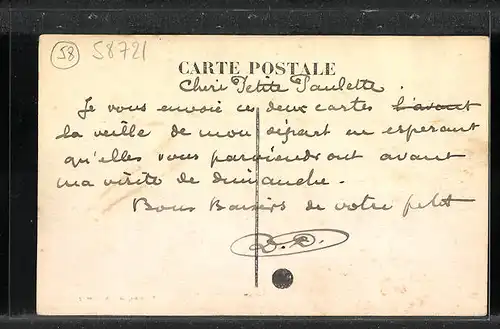 58 58721
CARTE POSTALE
Cheri Petite Paulette.
Je vous envoie ces deux cartes l'avant
la veille de mon départ en esperant
qu'elles vous parviendront avant
ma visite de dimanche.
Bons Baisers de votre petit
D.P.